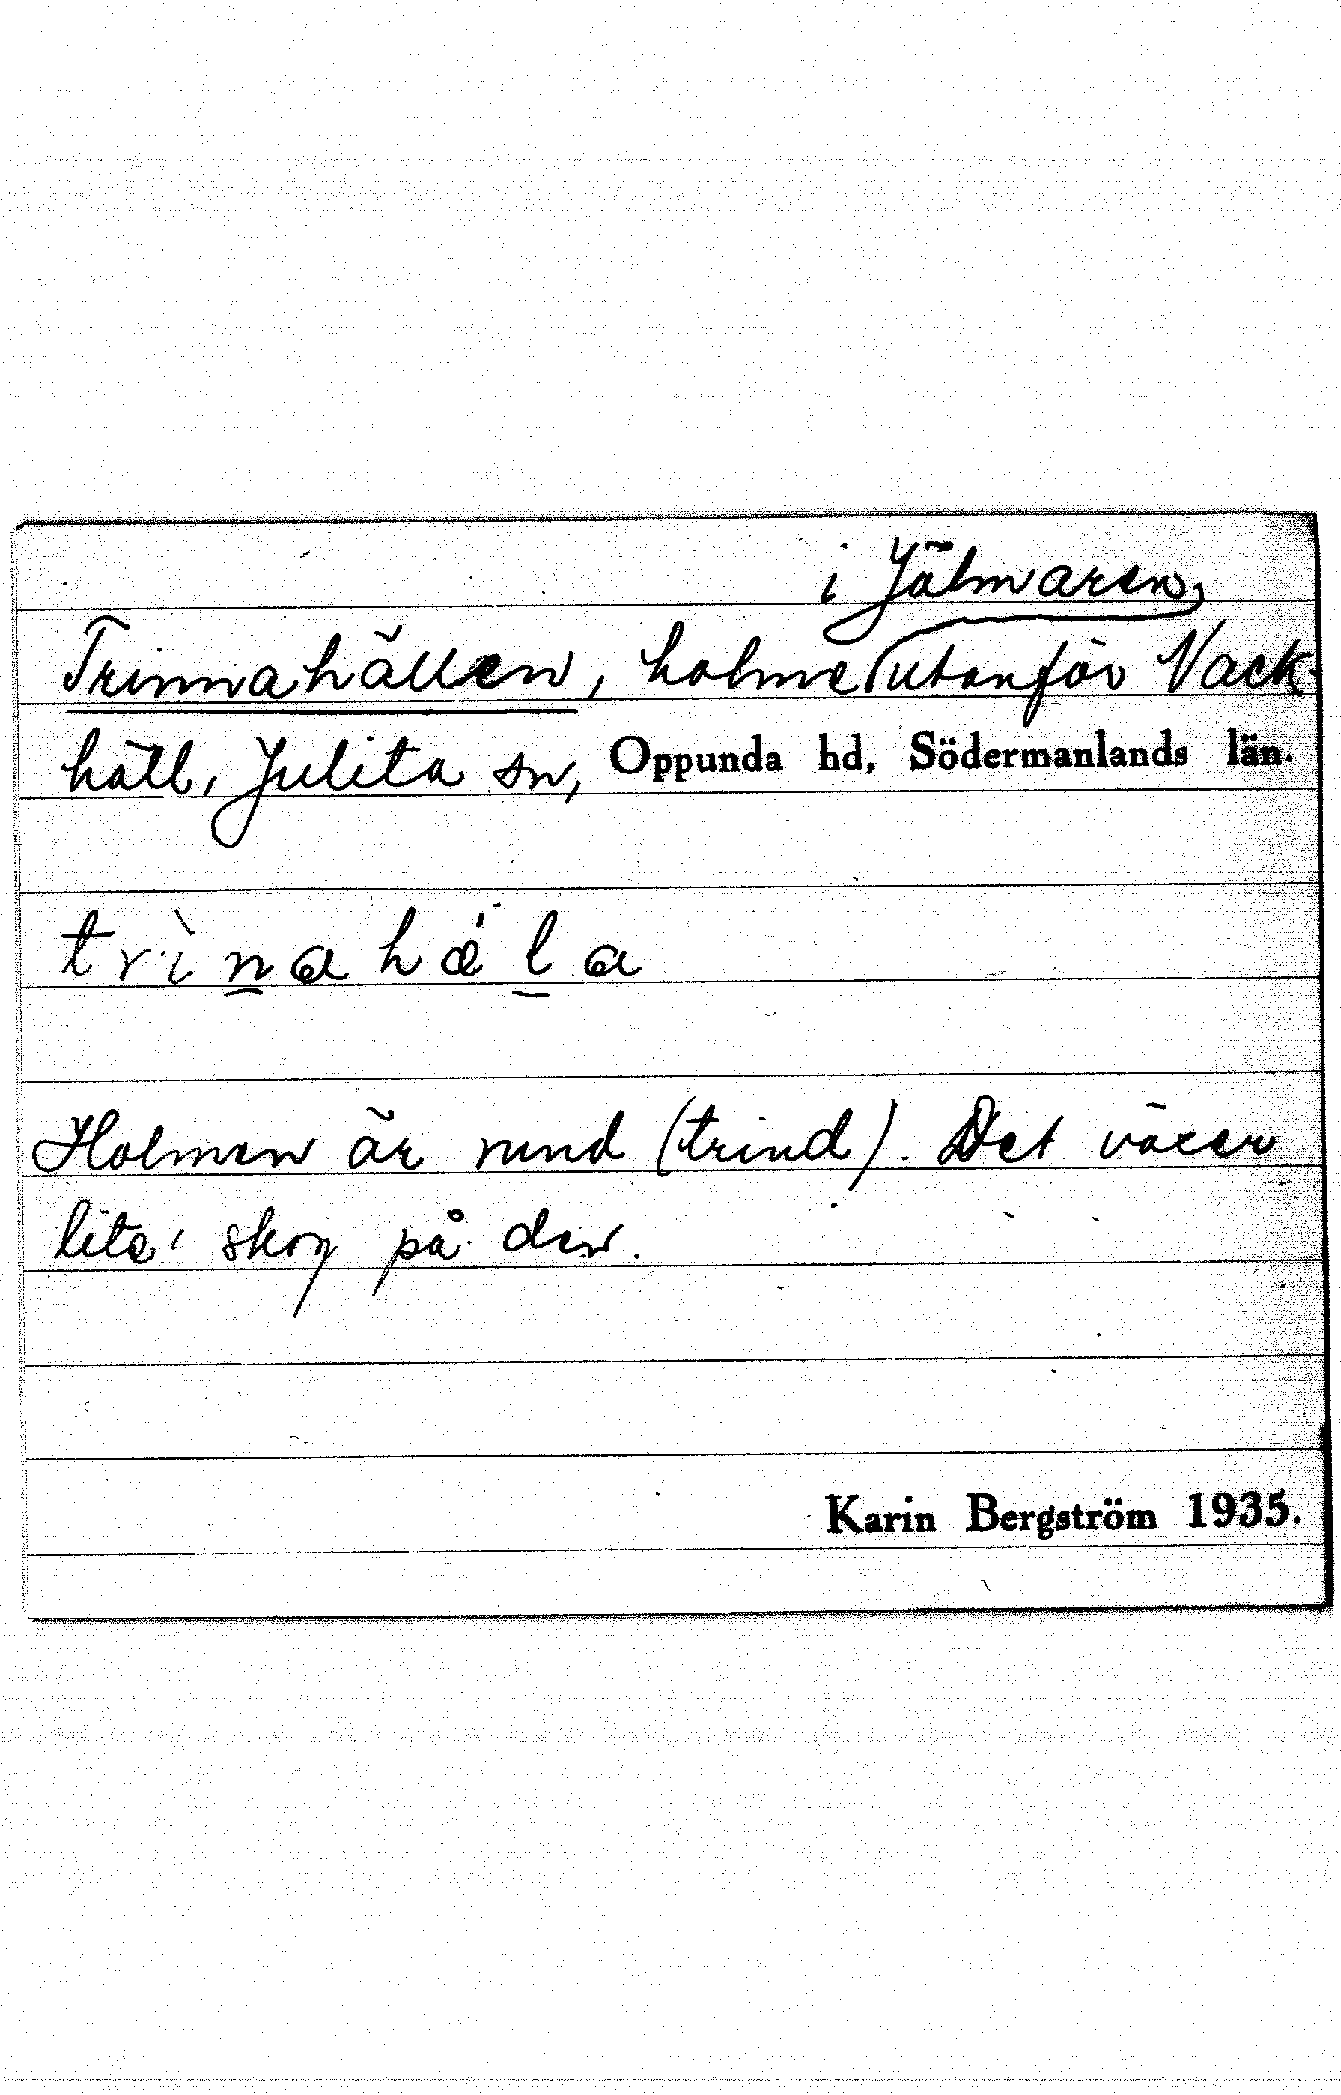 i Jälmaren,
Trinnahällen, holme utanför Vack-
häll, Julita sn, Oppunda hd, Södermanlands län.
trìnahǽla
Holmen är rund (trind). Det växer
lite skog på den.
Karin Bergström 1935.